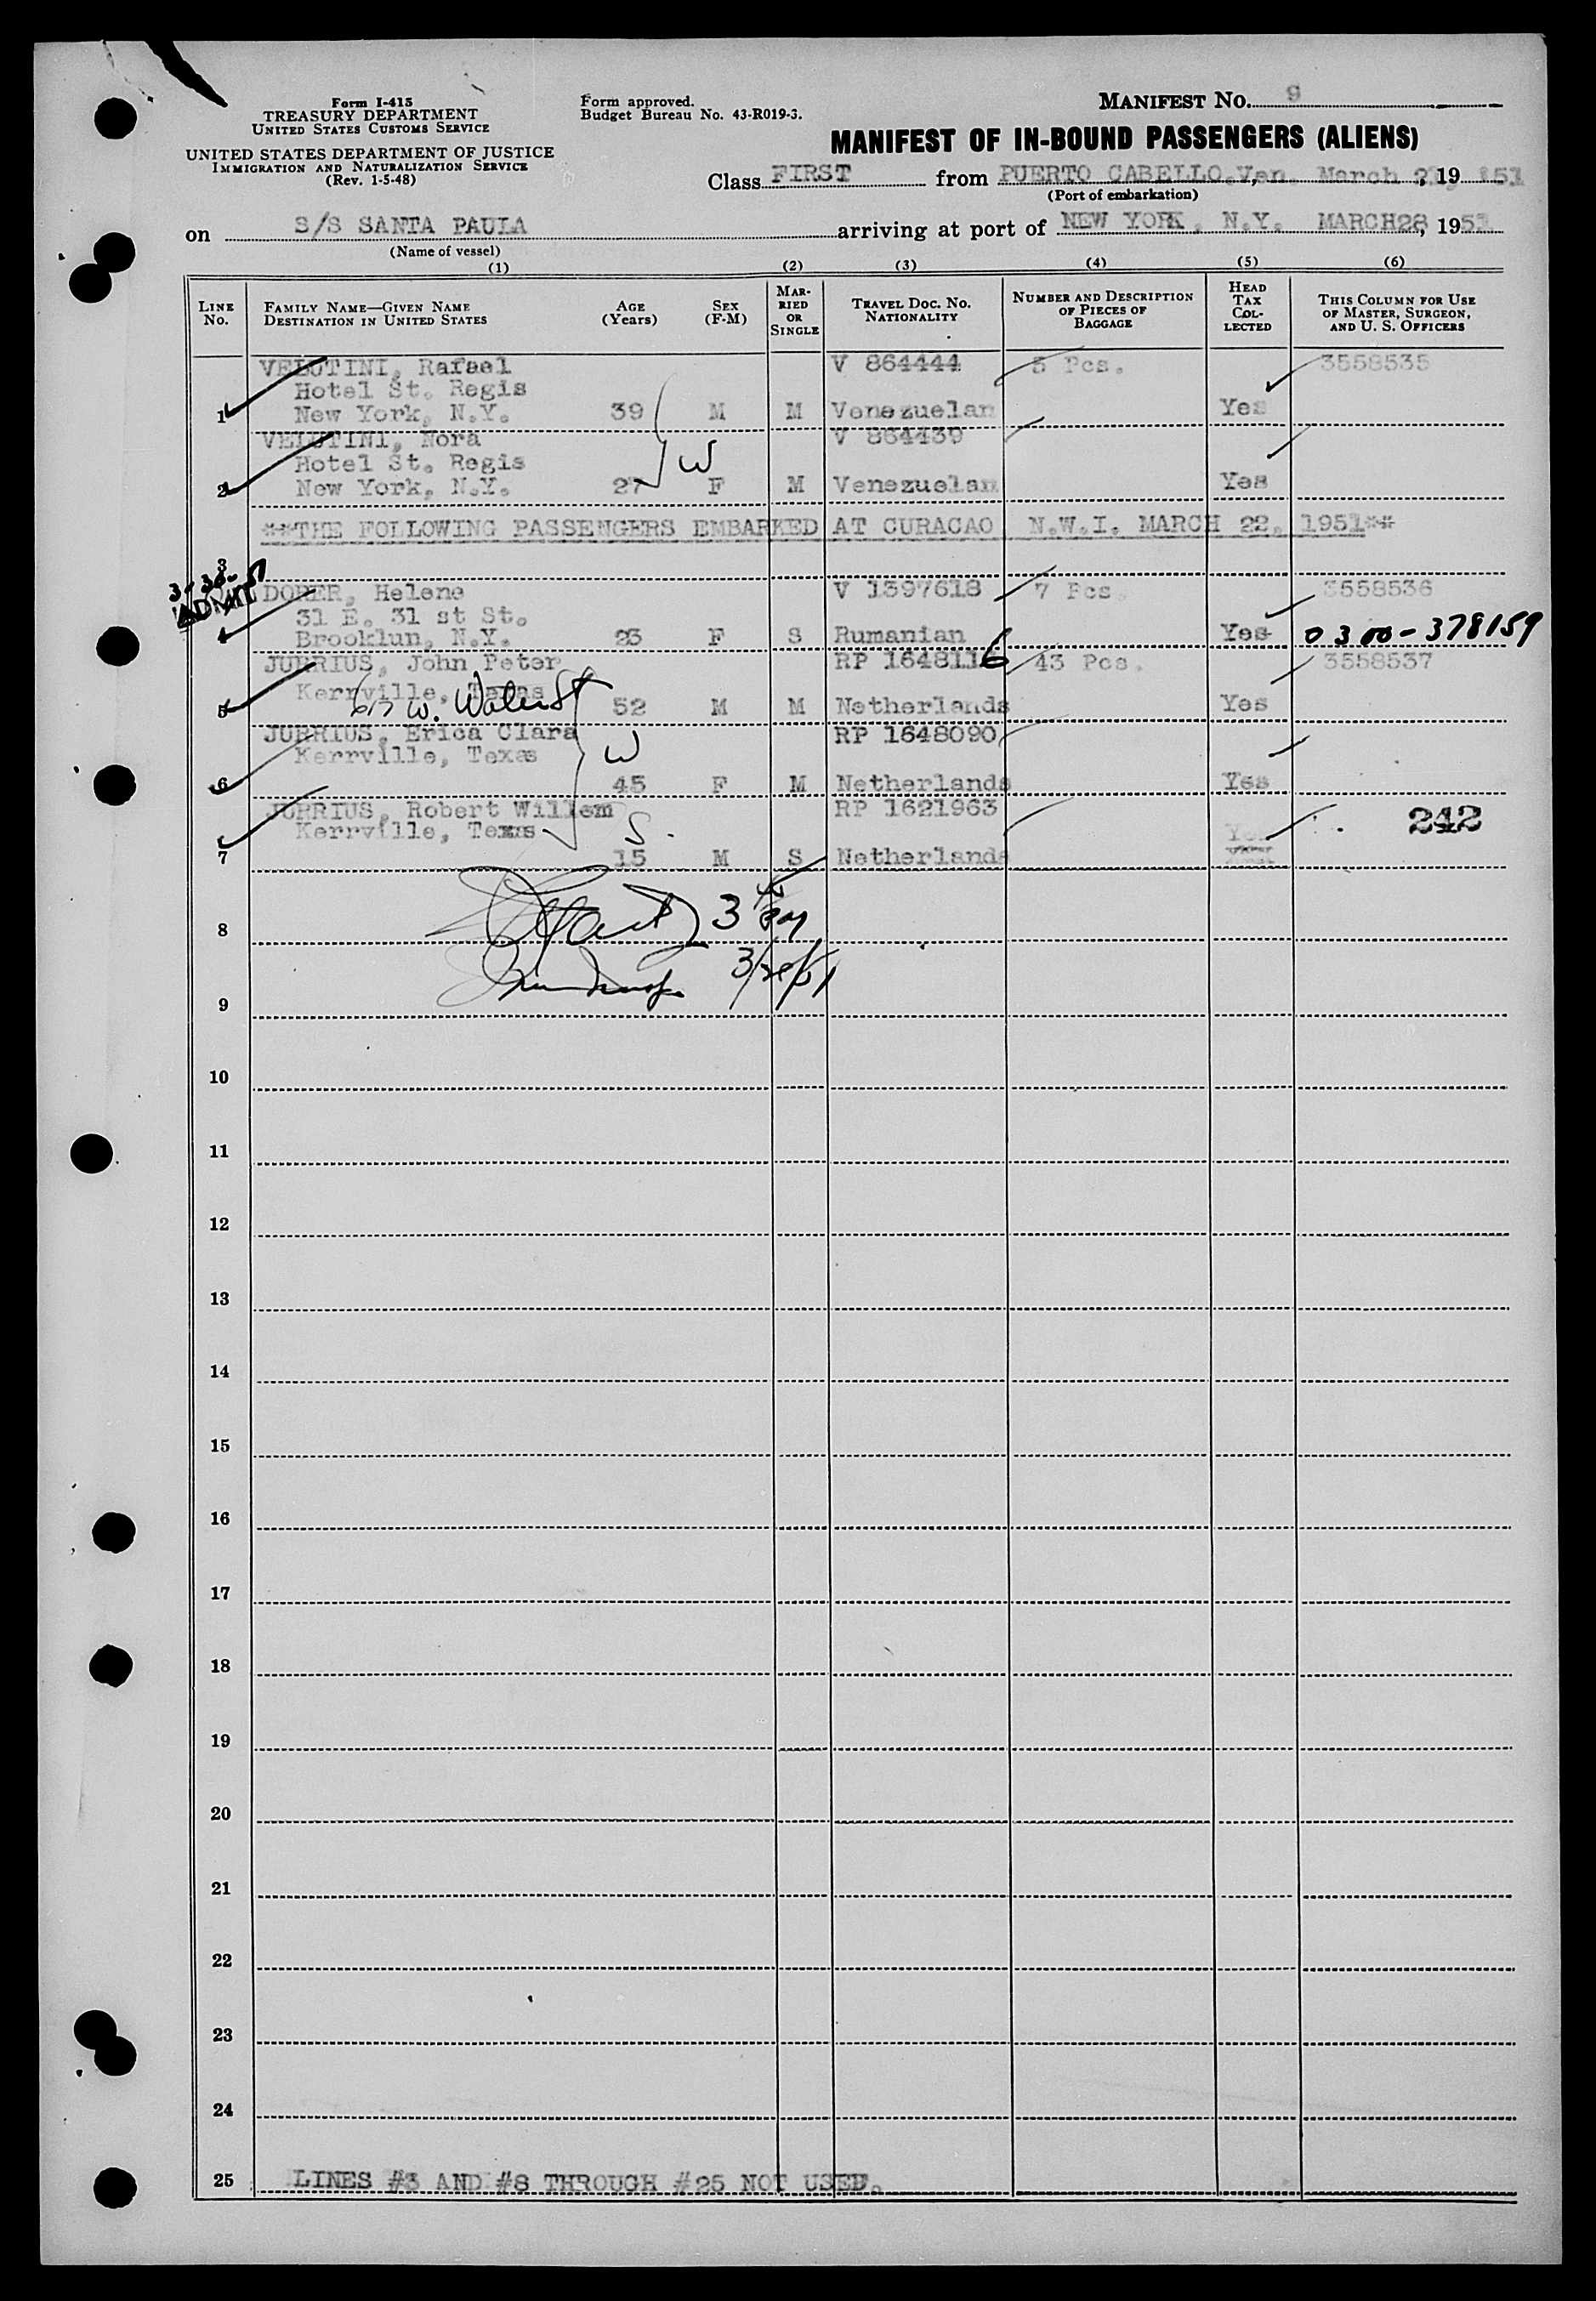 Form I-415
TREASURY DEPARTMENT
UNITED STATES CUSTOMS SERVICE
UNITED STATES DEPARTMENT OF JUSTICE
IMMIGRATION AND NATURALIZATION SERVICE
(Rev. 1-5-48)
Form approved.
Budget Bureau No. 43-R019-3.
MANIFEST NO. 9
MANIFEST OF IN-BOUND PASSENGERS (ALIENS)
Class FIRST from PUERTO CABELLO, Ven. March 19 51
(Port of embarkation)
on S/S SANTA PAULA arriving at port of NEW YORK, N.Y. MARCH28, 1951
(Name of vessel)
(1) (2) (3) (4) (5) (6)
LINE NO. FAMILY NAME—GIVEN NAME DESTINATION IN UNITED STATES AGE (Years) SEX (F-M) MARRIED OR SINGLE TRAVEL DOC. NO. NATIONALITY NUMBER AND DESCRIPTION OF PIECES OF BAGGAGE HEAD TAX COLLECTED THIS COLUMN FOR USE OF MASTER, SURGEON, AND U. S. OFFICERS
VELUTINI, Rafael V 864444 5 Pcs. 3558535
Hotel St. Regis
1 New York, N.Y. 39 M M Venezuelan Yes
VELUTINI, Nora V 864439
Hotel St. Regis W
2 New York, N.Y. 27 F M Venezuelan Yes
**THE FOLLOWING PASSENGERS EMBARKED AT CURACAO N.W.I. MARCH 22, 1951**
3
3-30-51
ADMIT DORER, Helene V 1397618 7 Pcs. 3558536
31 E. 31 st St.
4 Brooklun, N.Y. 23 F S Rumanian Yes 0300-378159
JURRIUS, John Peter RP 1648116 43 Pcs. 3558537
Kerrville, Texas
617 W. Water St
5 52 M M Netherlands Yes
JURRIUS, Erica Clara RP 1648090
Kerrville, Texas W
6 45 F M Netherlands Yes
JURRIUS, Robert Willem RP 1621963
Kerrville, Texas S. Yes 242
7 15 M S Netherlands
8 3
9 3/28/51
10
11
12
13
14
15
16
17
18
19
20
21
22
23
24
25 LINES #3 AND #8 THROUGH #25 NOT USED.